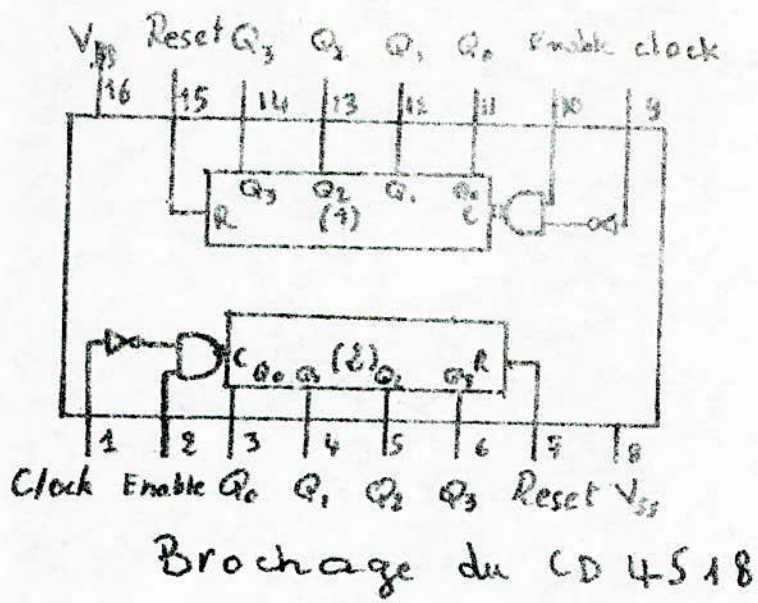 V_DD Reset Q3 Q2 Q1 Q0 Enable clock
16 15 14 13 12 11 10 9
Q3 Q2 Q1 Q0
R (1) C
C (2) R
Q0 Q1 Q2 Q3
1 2 3 4 5 6 7 8
Clock Enable Q0 Q1 Q2 Q3 Reset Vss
Brochage du CD 4518